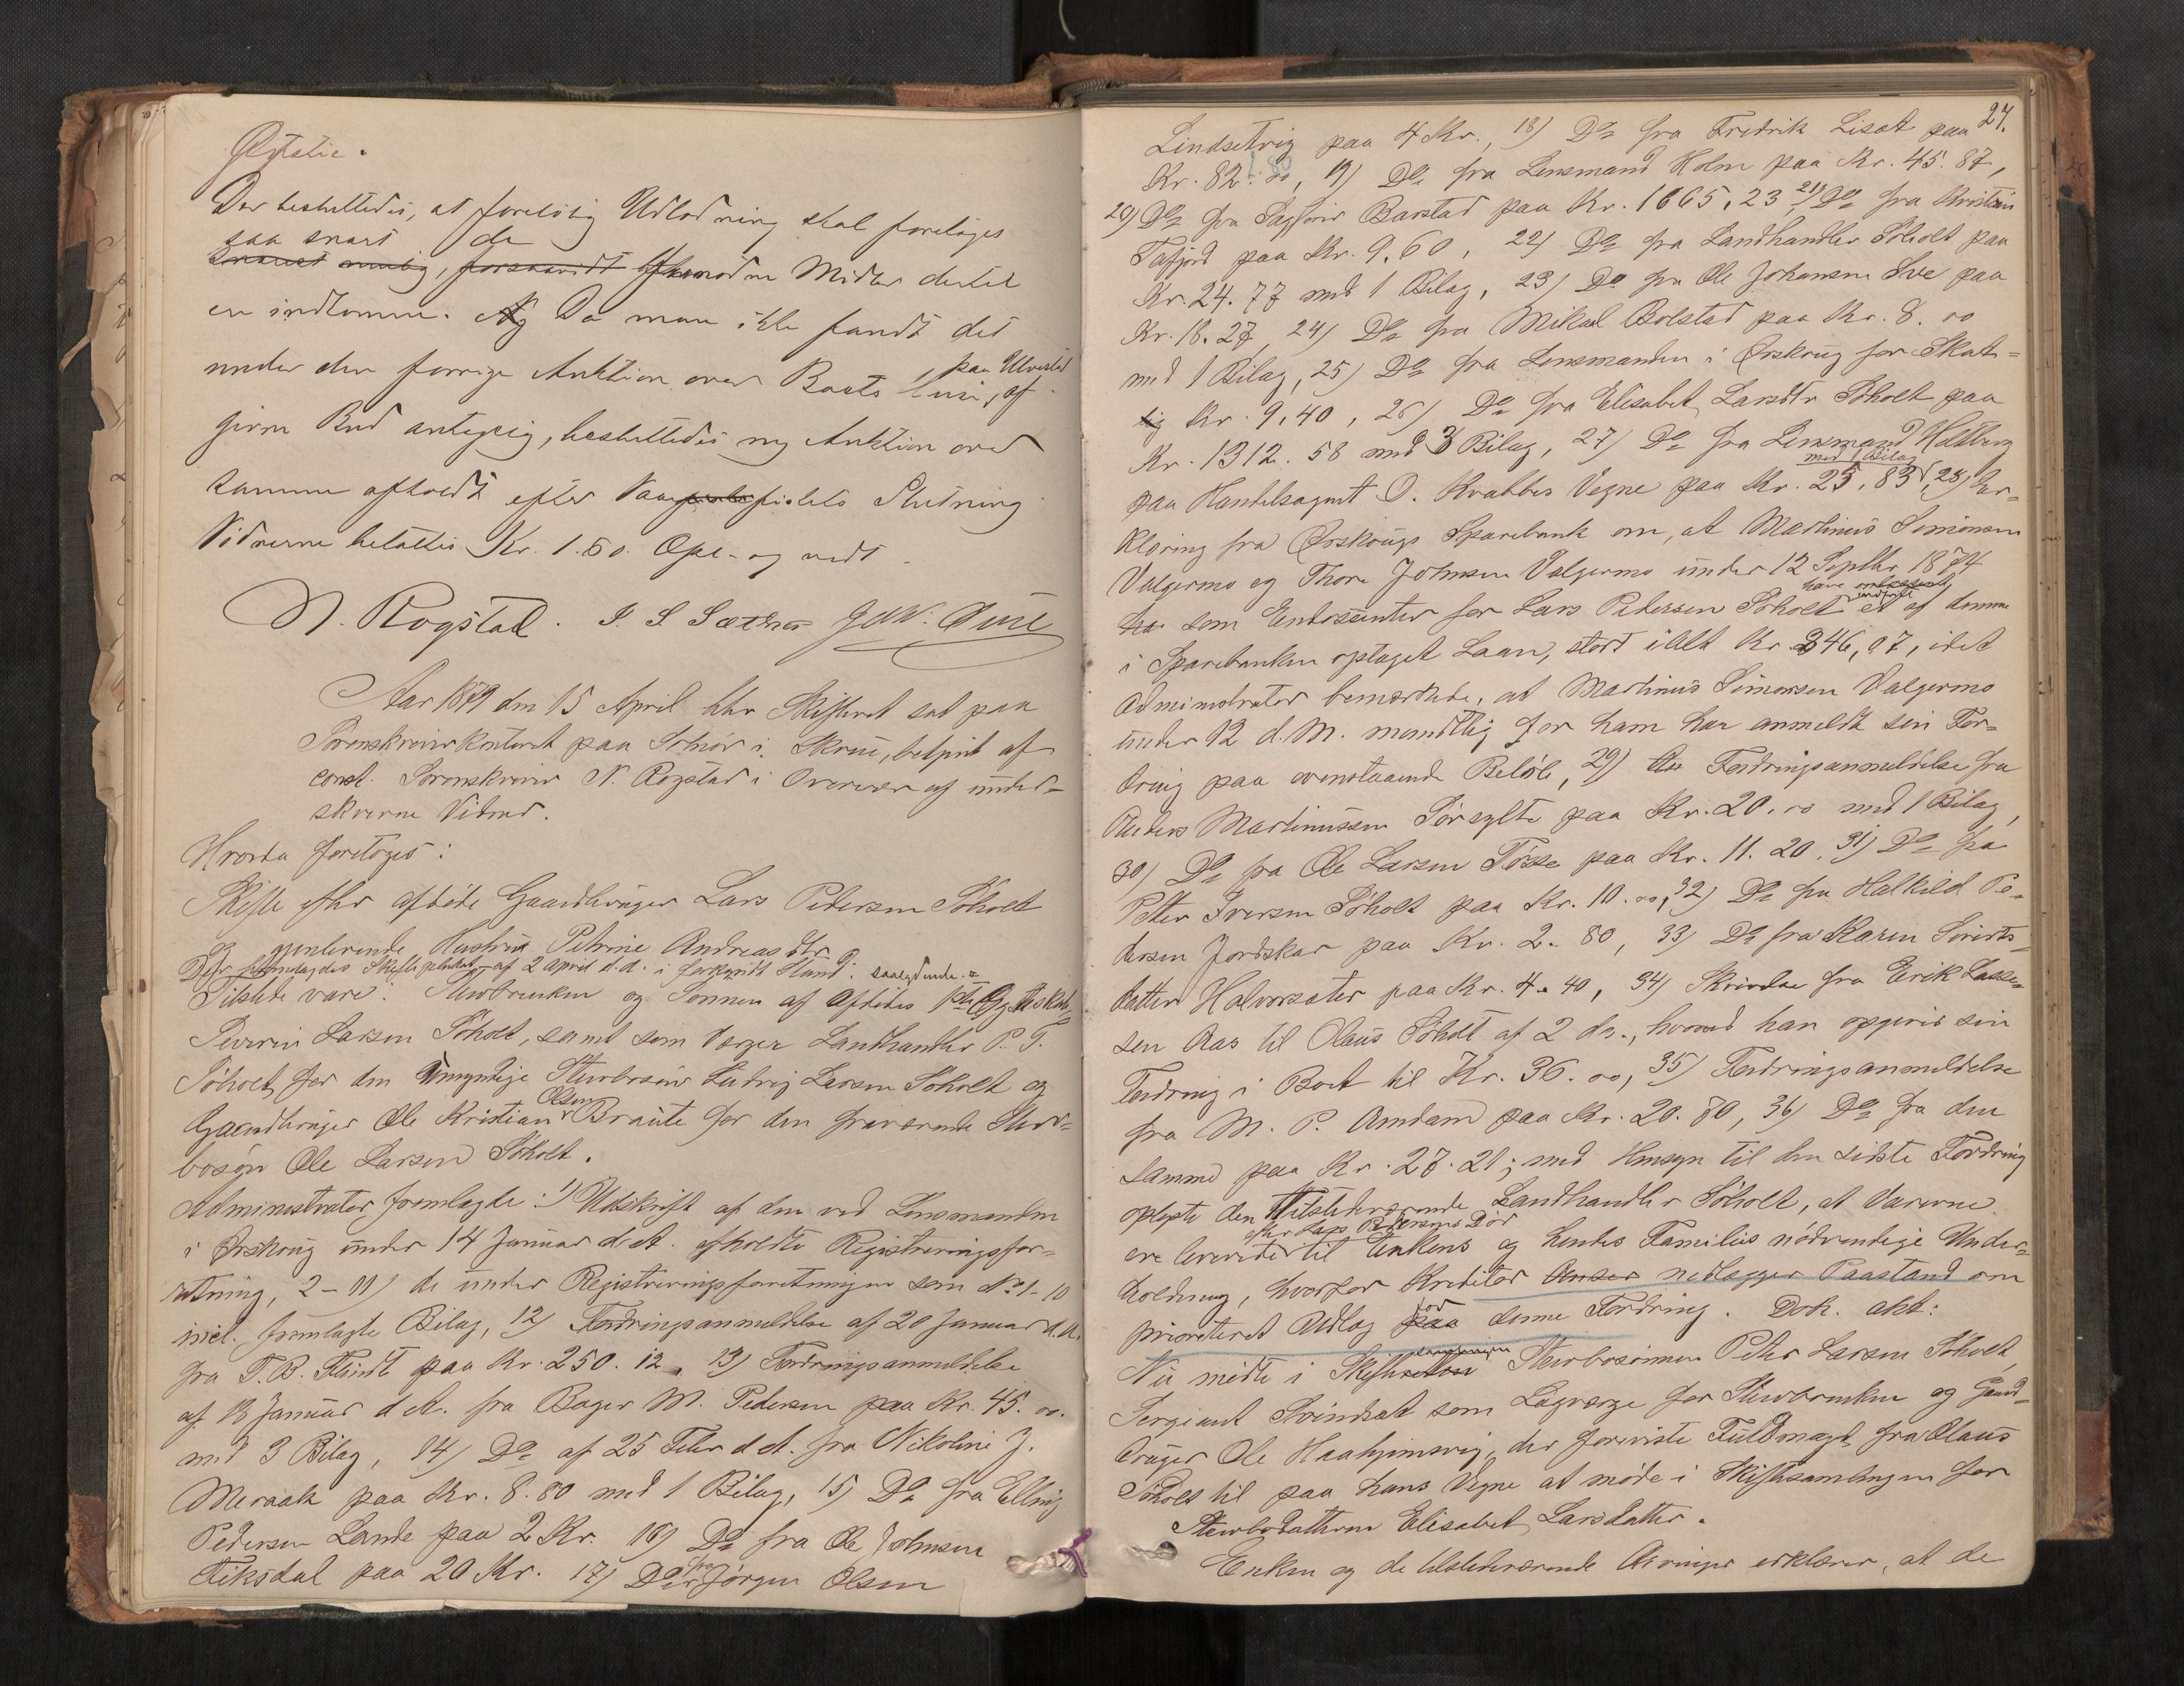 Der besluttedes, at foreløbig Udlodning skal foretages
saa snart de
snarest mulig, forsaavidt fornødne Midler dertil
er indkomne. Da man ikke fandt det
under den forrige Auktion over Boets Huse, paa Ulvestad af
givne Bud antagelig, besluttedes ny Auktion over
samme afholdt efter Vaarfiskets Slutning
Vidnerne betaltes Kr. 1.60. Opl. og vedt.
N. Rogstad. I. S. Sæther
Aar 1879 den 15 April blev Skifteret sat paa
Sorenskriverkontoret paa Solnør i Skoue, betjent af
const. Sorenskriver N. Rogstad i Overvær af under-
skrevne Vidner.
Hvorda foretoges:
Skifte efter afdøde Gaardbruger Lars Petersen Søholt
og gjenlevende Hustru Petrine Andreasdtr.
Der fremlagdes Skifteplakat af 2 April d.A. i forkyndt Stand. saalydende:
Tilstede vare: Sterboenken og Sønnen af Afdødes 1ste Ægteskab,
Severin Larsen Søholt, samt som Værger Landhandler P. T.
Søholt for den umyndige Sterbosøn Ludvig Larsen Søholt og
Gaardbruger Ole Kristian Olsen Braute for den fraværende Sterv-
bosøn Ole Larsen Søholt.
Administrator fremlagte: 1) Udskrift af den ved Lensmanden
i Ørskoug under 14 Januar d.A. afholdte Registreringsfor-
retning, 2-11) de under Registreringsforretningen som No 1-10
incl. fremlagte Bilag, 12) Fordringsanmeldelse af 20 Januar d.A.
fra T. B. Flindt paa Kr. 250.12, 13) Fordringsanmeldelse
af 18 Januar d.A. fra Bager M. Pedersen paa Kr. 45.00.
med 3 Bilag, 14) Do af 25 Febr d.A. fra Nikoline J.
Meraak paa Kr. 8.80 med 1 Bilag, 15) Do fra Elling
Pedersen Lande paa 2 Kr. 16) Do fra Ole Johnsen
Fiksdal paa 20 Kr. 17) Do fra Jørgen Olsen
27.
Lindsetvig paa 4 Kr., 18) Do fra Fredrik Liset paa
Kr. 82.00, 19) Do fra Lensmand Holm paa Kr. 45.87,
20) Do fra Sagfører Barstad paa Kr. 1665.23, 21) Do fra Kristian
Tafjord paa Kr. 9.60, 22) Do fra Landhandler Søholt paa
Kr. 24.77 med 1 Bilag, 23) Do fra Ole Johansen Sve paa
Kr. 18.27, 24) Do fra Mikael Bolstad paa Kr. 8.00
med 1 Bilag, 25) Do fra Lensmanden i Ørskoug for Skat-
Kr. 9.40, 26) Do fra Elisabet Larsdtr Søholt paa
Kr. 1312.58 med 3 Bilag, 27) Do fra Lensmand Holtberg
paa Handelsagent O. Krabbes Vegne paa Kr. 25.83 med 1 Bilag, 28) Er-
klæring fra Ørskougs Sparebank om, at Martinus Simonsen
Valgermo og Thore Johnsen Valgermo under 12 Septbr. 1874
som Endossenter for Lars Petersen Søholt have indfriet et af denne
i Sparebanken optaget Laan, stort ialt Kr. 346,07, idet
Administrator bemærkede, at Martinus Simonsen Valgermo
under 12 d.M. mundtlig for ham har anmeldt sin For-
dring paa ovenstaaende Beløb, 29) Fordringsanmeldelse fra
Anders Martinussen Sørsylte paa Kr. 20.00 med 1 Bilag,
30) Do fra Ole Larsen Tøsse paa Kr. 11.20, 31) Do fra
Petter Iversen Søholt paa Kr. 10.00, 32) Do fra Halkild Pe-
dersen Jordskar paa Kr. 2.80, 33) Do fra Karen Sivirts-
datter Halvorsæter paa Kr. 4.40, 34) Skrivelse fra Erik Lasse-
sen Aas til Olaus Søholt af 2 ds., hvorved han opgiver sin
Fordring i Boet til Kr. 36.00, 35) Fordringsanmeldelse
fra M. P. Amdam paa Kr. 20.80, 36) Do fra den
samme paa Kr. 27.21; med Hensyn til den sidste Fordring
oplyste den tilstedeværende Landhandler Søholt, at Varerne
ere leverede efter Lars Petersens Død til Enkens og hendes Families nødvendige Under-
holdning, hvorfor Kreditor nedlægger Paastand om
prioriteret Udlæg for denne Fordring. Dok. akt:
Nu mødte i Skiftesamlingen Sterbosønnen Peter Larsen Søholt,
Sergeant Svindset som Lagværge for Sterboenken og Gaard-
bruger Ole Haahjemsvig, der foreviste Fuldmagt fra Olaus
Søholt til paa hans Vegne at møde i Skiftesamlingen for
Sterbodatteren Elisabet Larsdatter.
Enken og de tilstedeværende Arvinger erklærer, at de